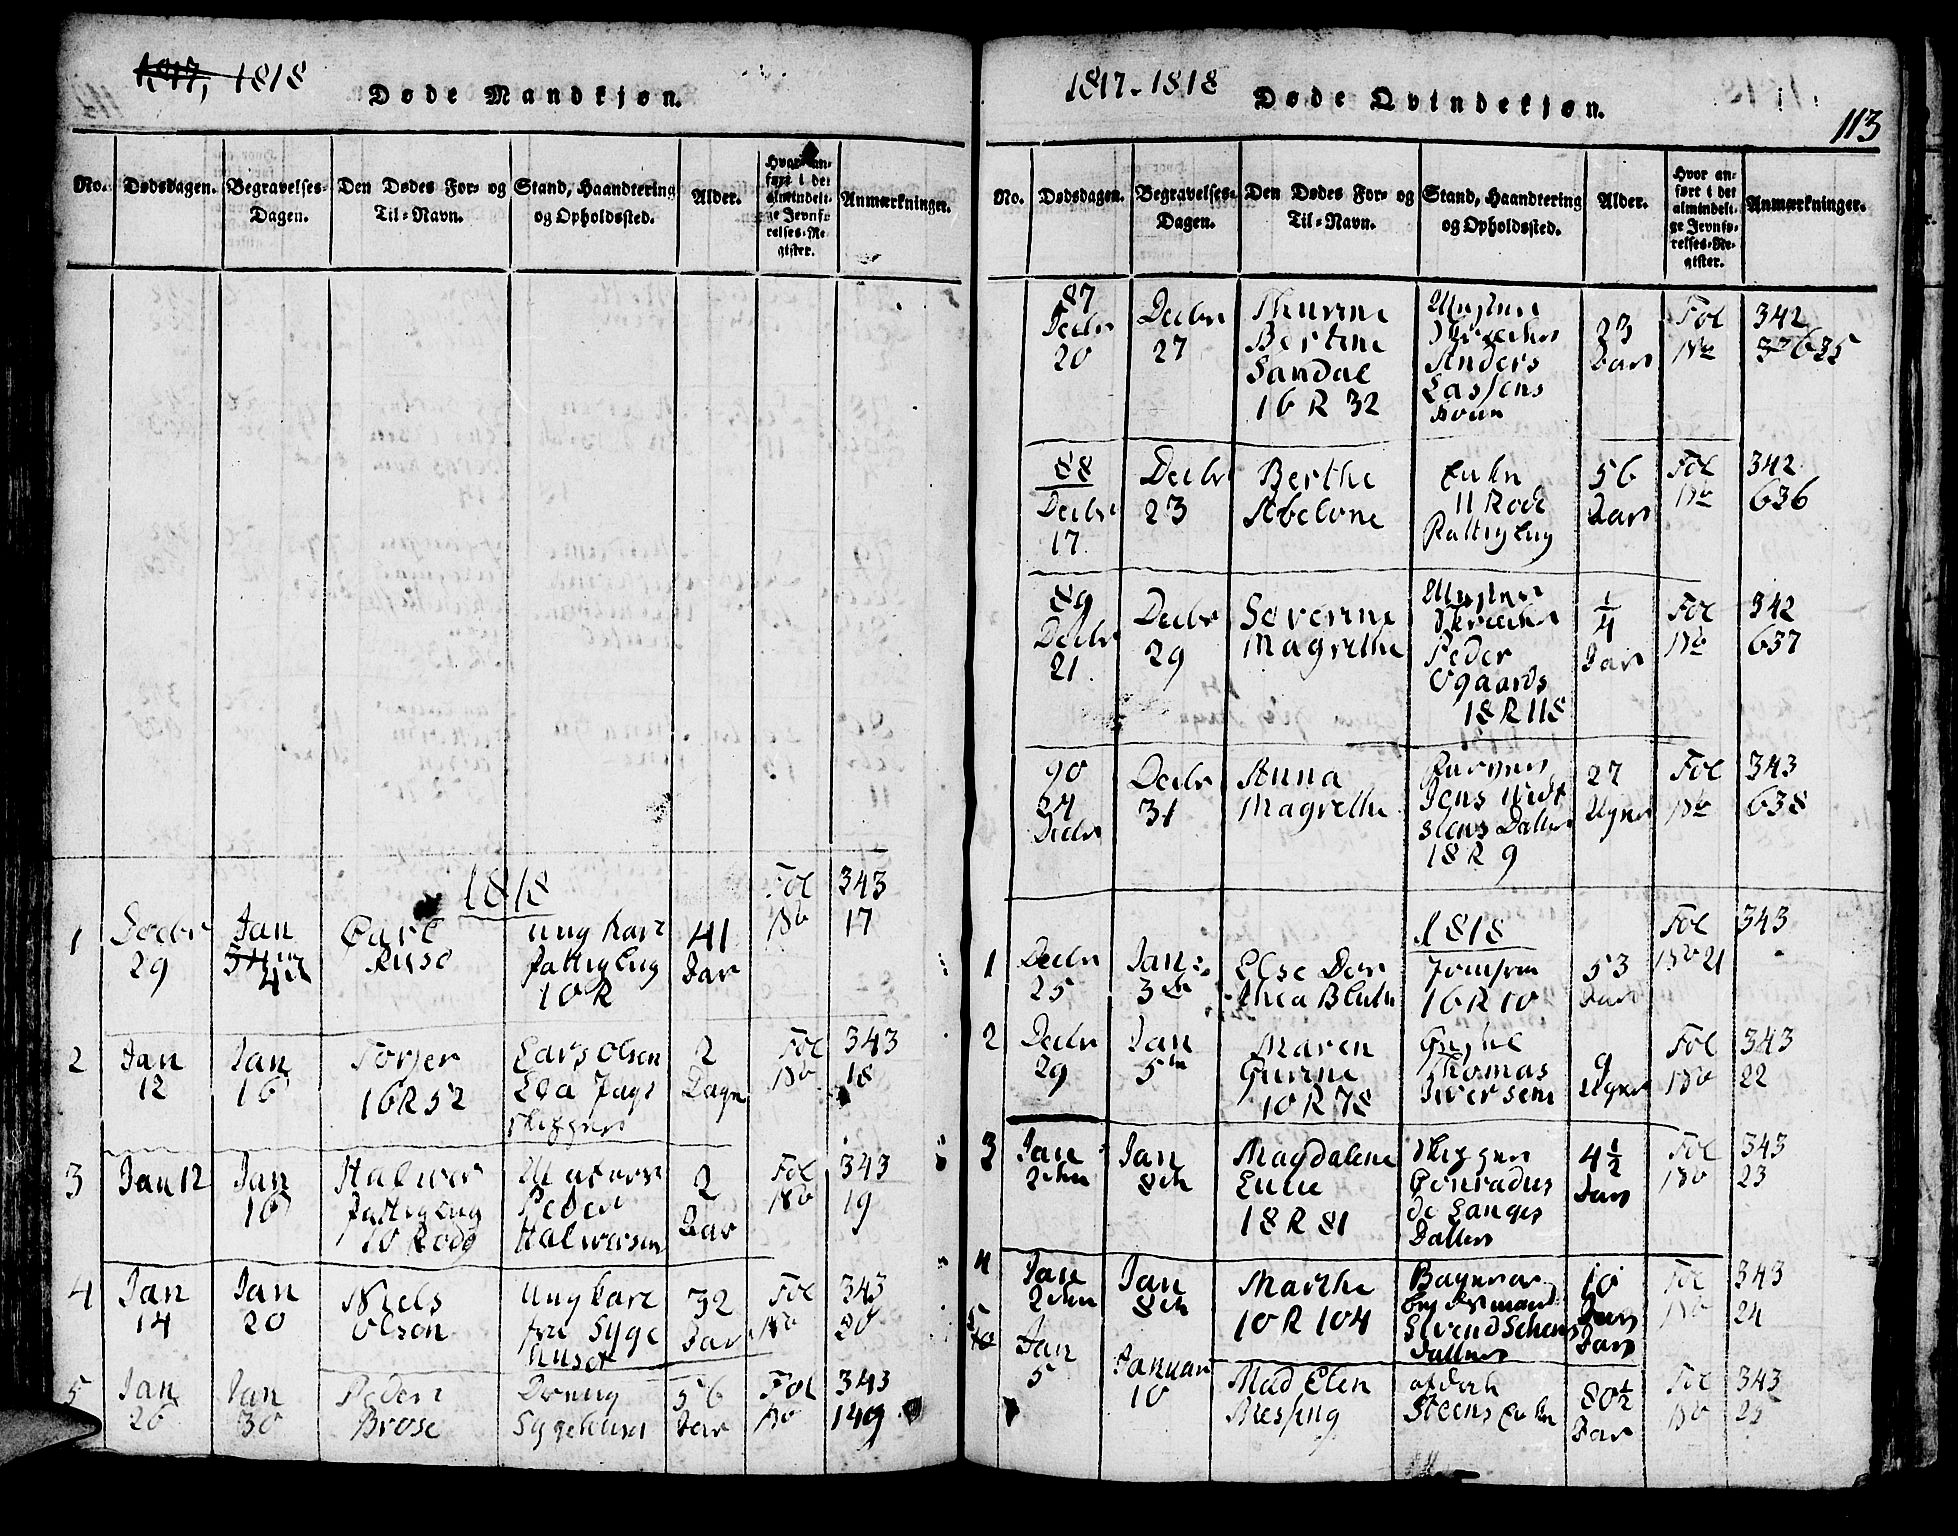 1817, 1818
Døde Mandkjøn.
No.
Dødsdagen.
Begravelses-
Dagen.
Den Dødes For- og
Til-Navn.
Stand, Haandtering
og Opholdssted.
Alder.
Hvor an-
ført i det
almindeli-
ge Jevnfø
relses-Re-
gister.
Anmærkninger.
1818
1
29
Jan
Carl
Ruse
ung karl
10 R
41
Aar
Fol
No
343
17
2
Jan
12
Jan
16
Torjer
16 R 52
Lars Olsen
2
Dage
Fol
No
343
18
3
Jan 12
Jan
16
Halwer
10 Rode
Peder
Halwersen
2
Aar
Fol
No
343
19
4
Jan
14
Jan
20
Niels
Olsen
Ung karl
fra Syge
huset
32
Aar
Fol
No
343
20
5
Jan
26
Jan
30
Peder
Brose
Dreng
Sygehuset
56
Aar
Fol
No
343
149
1817-1818
Døde Qvindekjøn.
113
No.
Dødsdagen.
Begravelses-
Dagen.
Den Dødes For- og
Til-Navn.
Stand, Haandtering
og Opholdssted.
Alder.
Hvor an-
ført i det
almindeli-
ge Jevnfø-
relses-Re-
gister.
Anmærkninger.
87
Decbr
20
Decbr
27
Thurine
Bertine
Sandal
16 R 32
Anders
Lassens
23
Aar
Fol
No
342
635
88
Decbr
17
Decbr
23
Berthe
Abelone
Enke
11 Rode
56
Aar
Fol
No
342
636
89
Decbr
21
Decbr
29
Severine
Magrethe
Peder
Ogaards
18 R 118
1/4
Aar
Fol
No
342
637
90
24
Decbr
Decbr
31
Anna
Magrethe
Jens
Datter
18 R 9
27
Uger
Fol
No
343
638
1818
1
Decbr
25
Jan
3
Else Dor
thea
Jomfru
16 R 10
53
Aar
Fol
No 21
343
2
Decbr
29
Jan
5te
Maren
Gurine
10 R 78
Thomas
Iversens
9
Uger
Fol
No
343
22
3
Jan
2den
Jan
8de
Magdalene
18 R 81
Skipper
Conradus
de Langes
Datter
4 1/2
Aar
Fol
No
343
23
4
Jan
2den
Jan
8de
Marthe
10 R 104
Datter
10
Aar
Fol
No
343
24
5
Jan
5
Januar
10
Mad Elen
Messing
Steens Enke
80 1/2
Aar
Fol
No
343
25